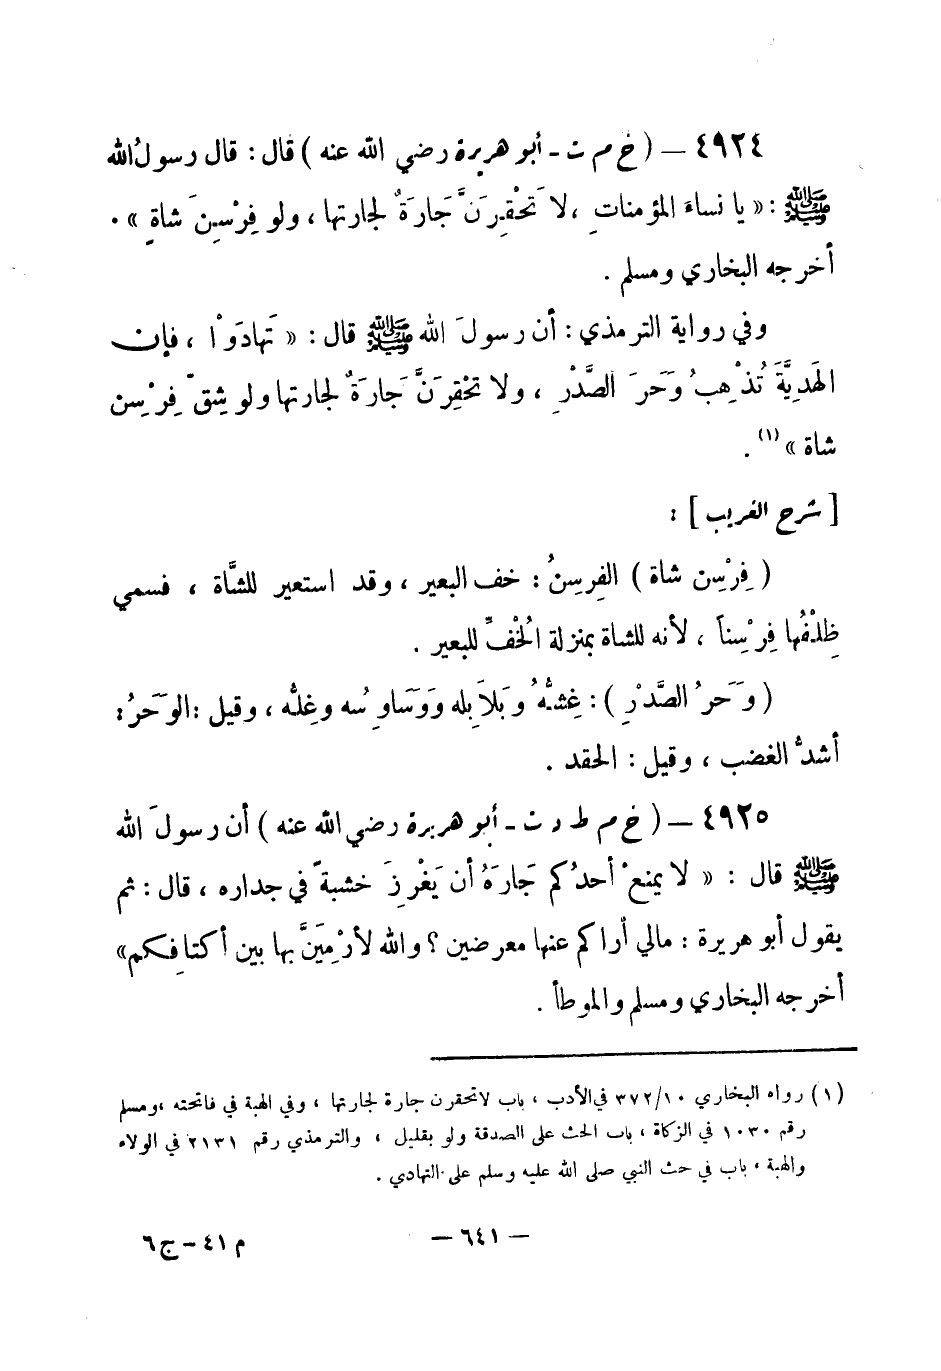 ٤٩٢٤ – ( خ م ت - أبو هريرة رضي الله عنه ) قال : قال رسولُ الله
ﷺ : « يا نساءَ المؤمناتِ ، لا تَحْقِرَنَّ جَارَةٌ لجارتها ، ولو فِرْسِنَ شاةٍ » .
أخرجه البخاري ومسلم .
وفي رواية الترمذي : أن رسولَ الله ﷺ قال : « تَهادَوْا ، فإن
الهَدِيَّةَ تُذْهِبُ وَحَرَ الصَّدْرِ ، ولا تَحْقِرَنَّ جَارَةٌ لجارتها ولو شِقَّ فِرْسِن
شاة » (١) .
[ شرح الغريب ] :
( فِرْسِن شاة ) الفِرسِنُ : خف البعير ، وقد استعير للشَّاة ، فسمي
ظِلْفُها فِرْسِناً ، لأنه للشاة بمنزلة الخُفِّ للبعير .
( وَحَرُ الصَّدْرِ ) : غِشُّهُ وبَلاَبِله ووَسَاوِسُه وغِلُّه ، وقيل : الوَحَرُ :
أشدُّ الغضب ، وقيل : الحقد .
٤٩٢٥ – ( خ م ط د ت - أبو هريرة رضي الله عنه ) أن رسولَ الله
ﷺ قال : « لا يمنعْ أحدُكم جَارَهُ أن يَغْرِزَ خشبةً في جداره ، قال : ثم
يقول أبو هريرة : مالي أراكم عنها معرضين ؟ والله لأرْمِيَنَّ بها بين أكتافِكم »
أخرجه البخاري ومسلم والموطأ .
(١) رواه البخاري ١٠/٣٧٢ في الأدب ، باب لا تحقرن جارة لجارتها ، وفي الهبة في فاتحته ، ومسلم
رقم ١٠٣٠ في الزكاة ، باب الحث على الصدقة ولو بقليل ، والترمذي رقم ٢١٣١ في الولاء
والهبة ، باب في حث النبي صلى الله عليه وسلم على التهادي .
– ٦٤١ –
م ٤١ – ج ٦